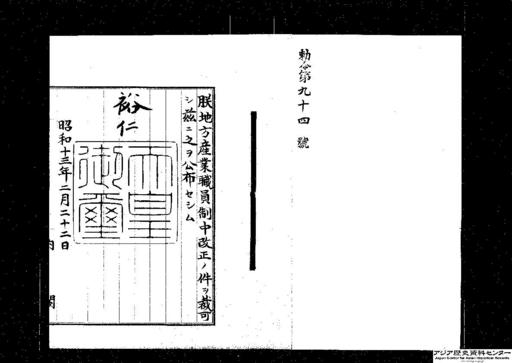 勅令第九十四號
朕地方産業職員制中改正ノ件ヲ裁可
シ茲ニ之ヲ公布セシム
裕仁
天皇御璽
昭和十三年二月二十二日
内閣
アジア歴史資料センター
Japan Center for Asian Historical Records